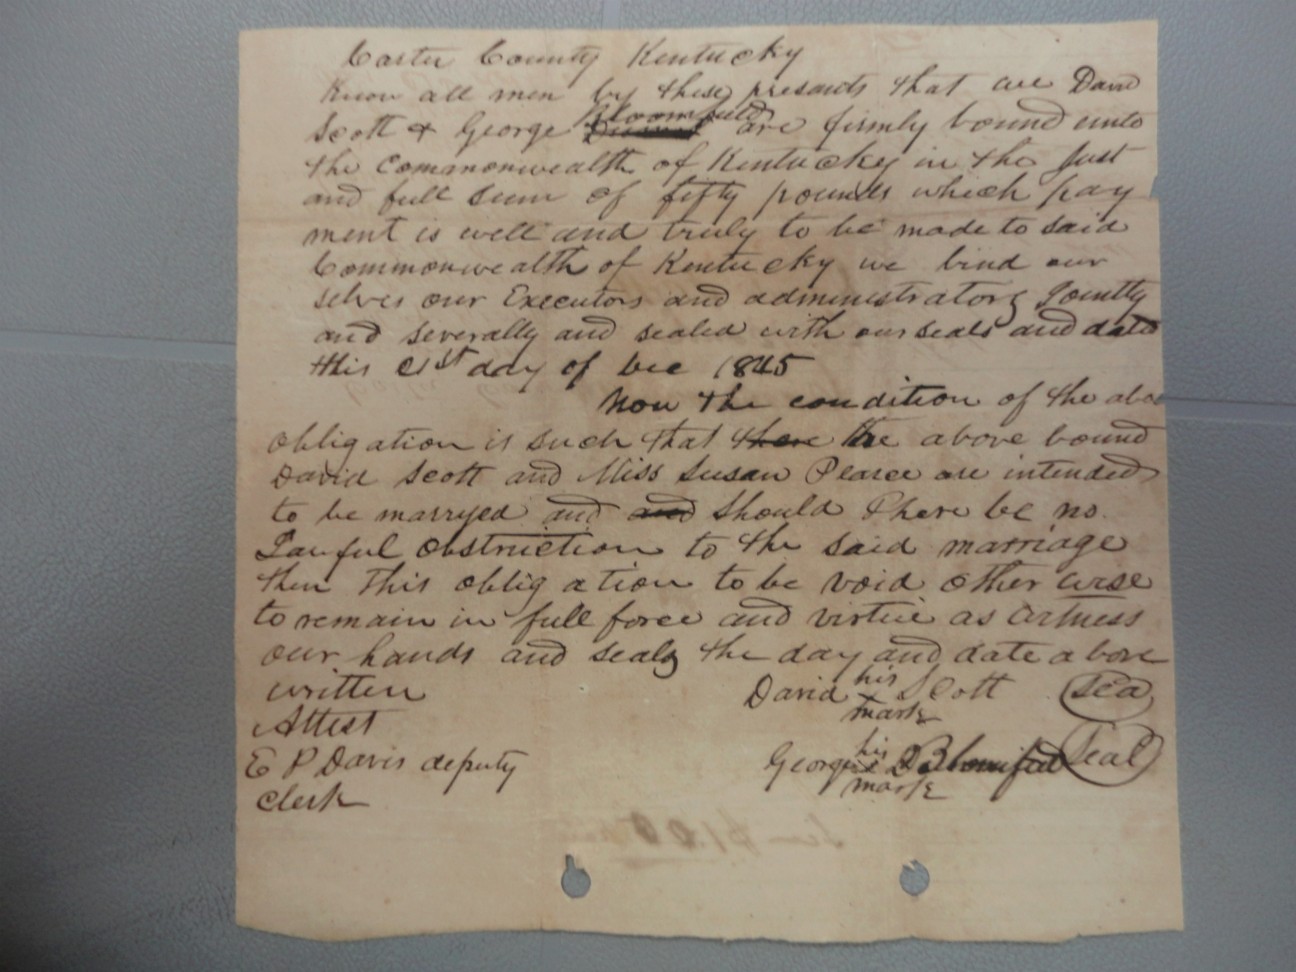 Carter County Kentucky
Know all men by these presants that we David
Scott & George Bloomfield are firmly bound unto
the Commonwealth of Kentucky in the Just
and full sum of fifty pounds which pay
ment is well and truly to be made to said
Commonwealth of Kentucky we bind our
selves our Executors and administrators Jointly
and severally and sealed with our seals and date
this 21st day of Dec 1845
Now the condition of the abo
obligation is such that there the above bound
David Scott and Miss Susan Pearce are intended
to be marryed and and should there be no
Lawful obstruction to the said marriage
then this obligation to be void other wise
to remain in full force and virtue as witness
our hands and seals the day and date above
written David his Scott Sea
Attest mark
E P Davis deputy George his Blomifed Seal
Clerk mark